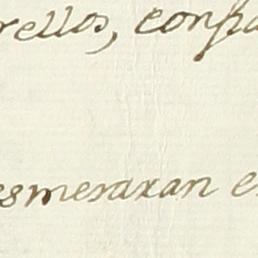 rellos, confia
esmeraxan e